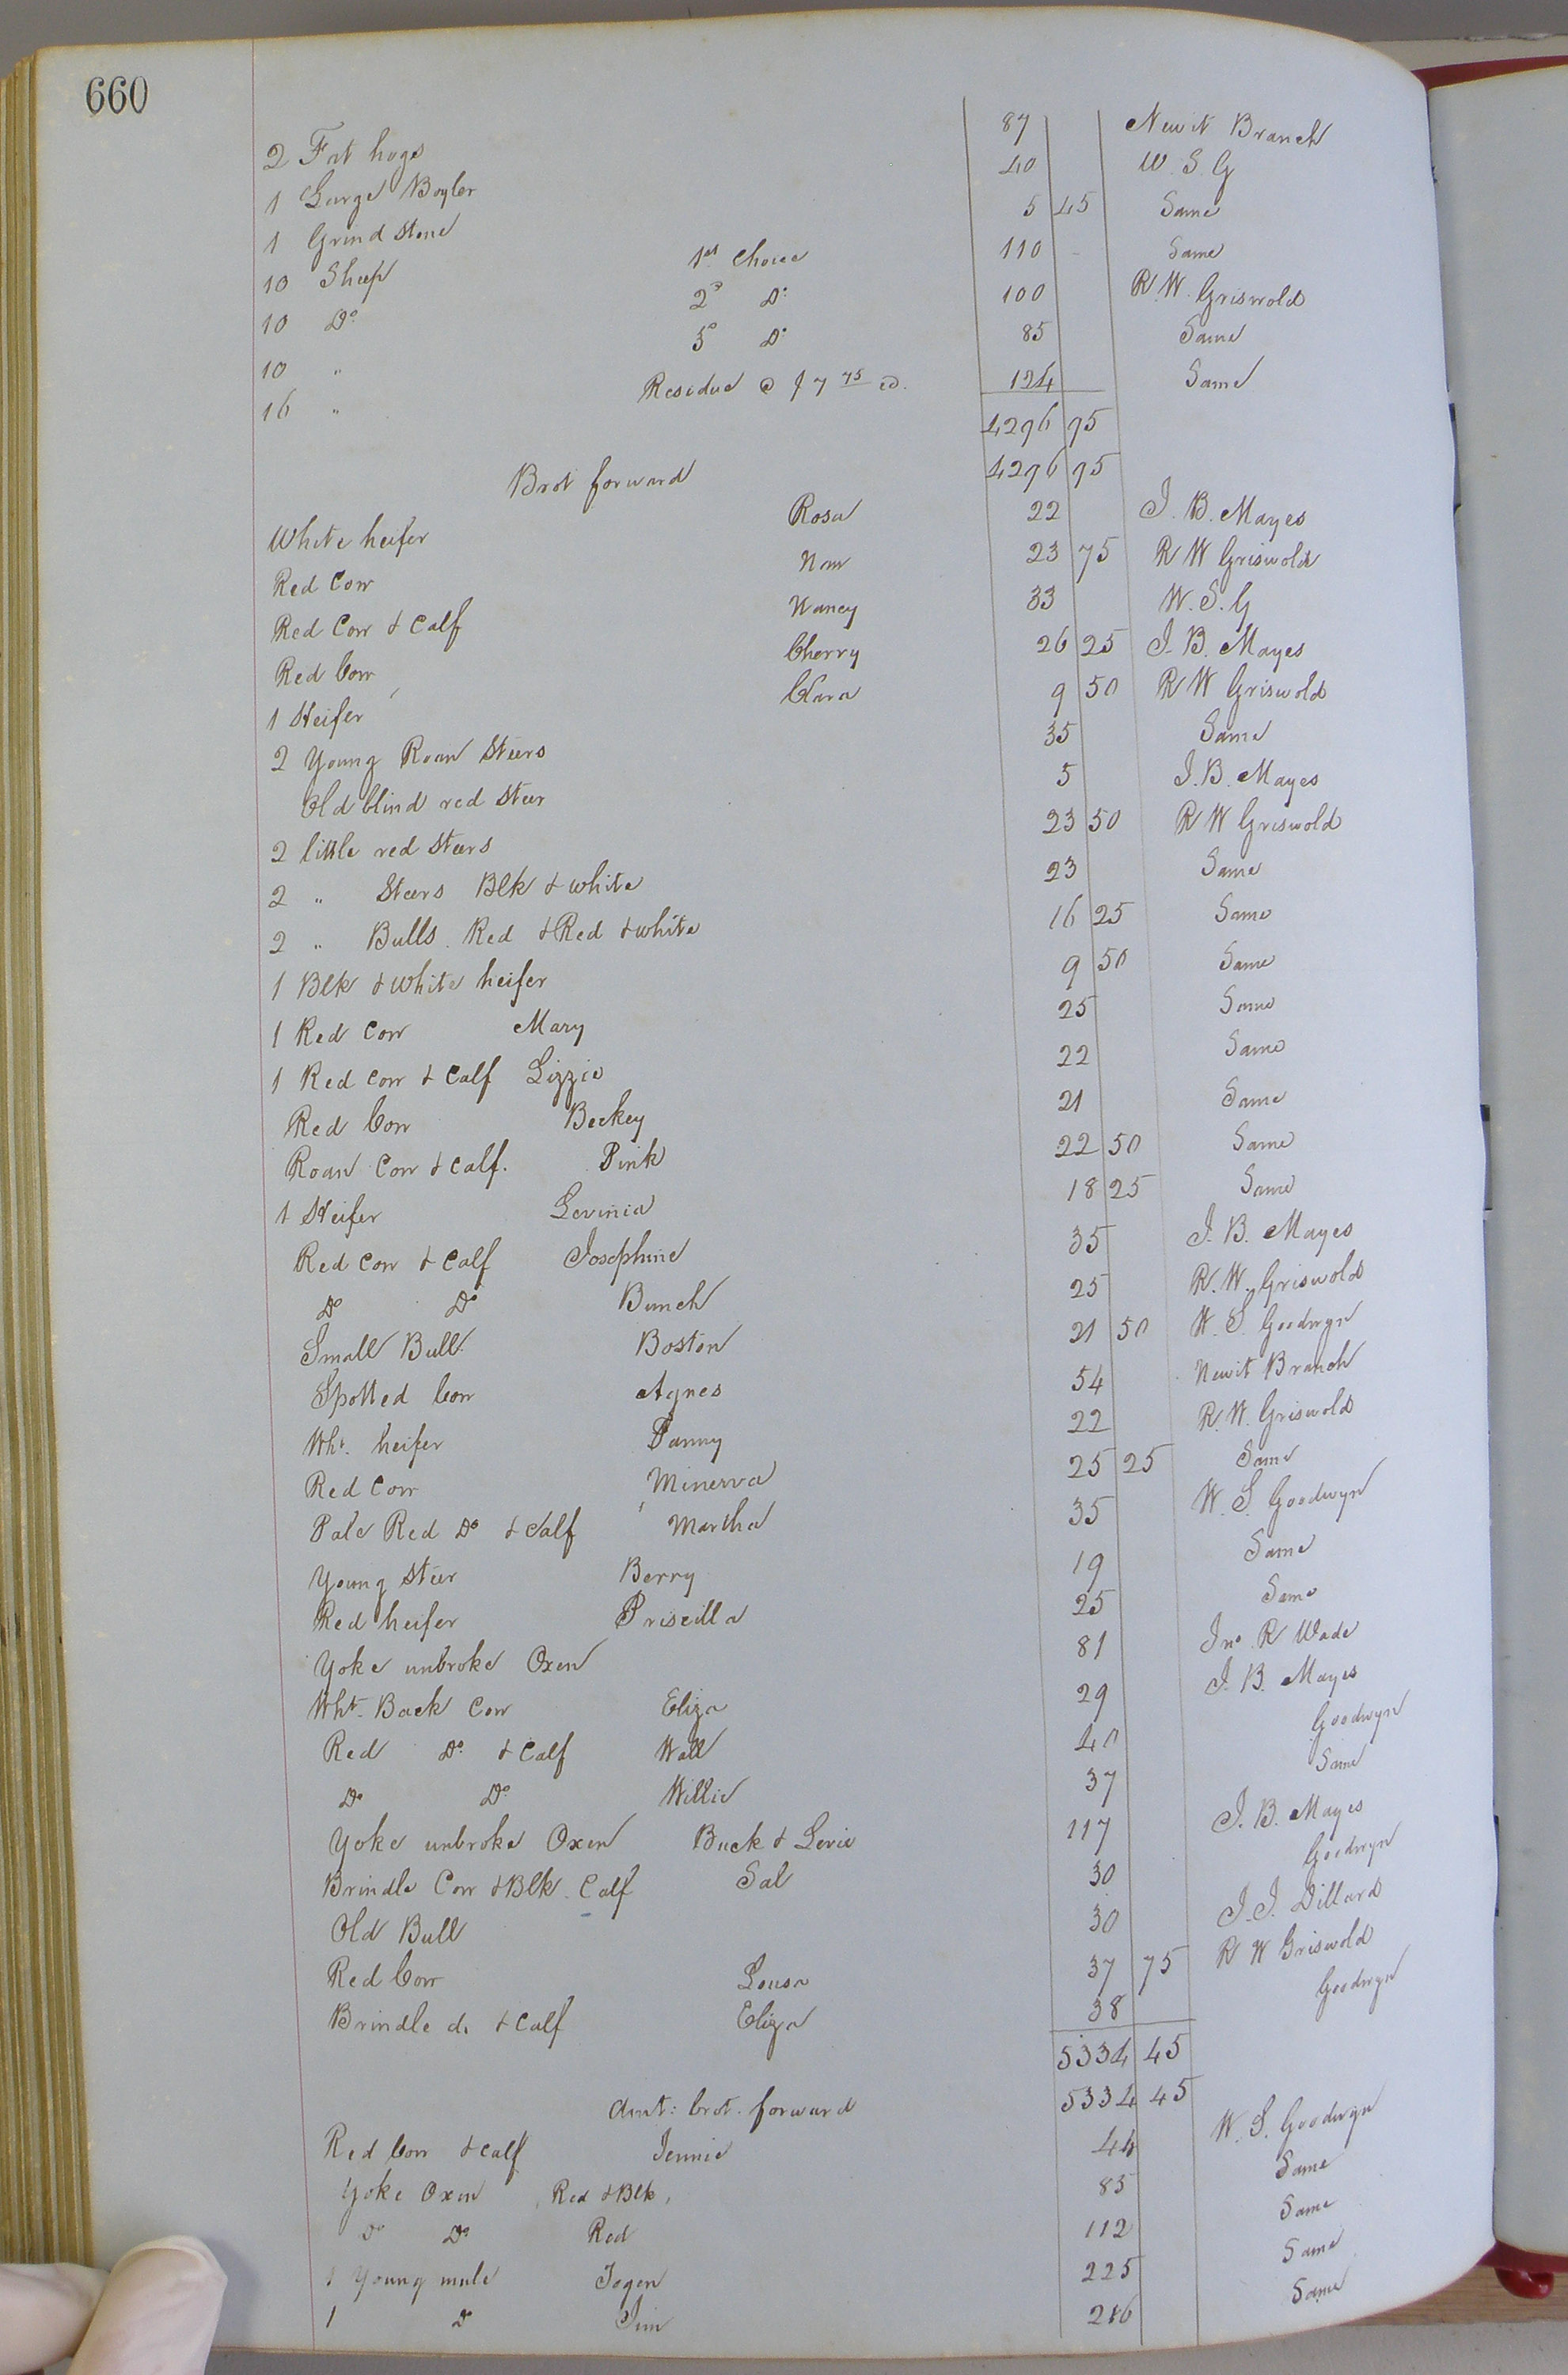 660
2 Fat hogs 87 Newit Branch
1 Large Boyler 40 W. S. G
1 Grind Stone 5 45 Same
10 Sheep 1st Choice 110 Same
10 Do 2d Do 100 R. W. Griswold
10 " 3d Do 85 Same
16 " Residue @ $7 75 124 Same
4296 95
Brot forward 4296 95
White heifer Rosa 22 J. B. Mayes
Red Cow Nan 23 75 R W Griswold
Red Cow & Calf Nancy 33 W. S. G
Red Cow Cherry 26 25 J. B. Mayes
1 Heifer Clara 9 50 R W Griswold
2 Young Roan Steers 35 Same
Old blind red Steer 5 J. B. Mayes
2 little red Steers 23 50 R W Griswold
2 " Steers Blk & white 23 Same
2 " Bulls. Red & Red & white 16 25 Same
1 Blk & white heifer 9 50 Same
1 Red Cow Mary 25 Same
1 Red Cow & Calf Lizzie 22 Same
Red Cow Beckey 21 Same
Roan Cow & Calf. Pink 22 50 Same
1 Heifer Levinia 18 25 Same
Red Cow & Calf Josephine 35 J. B. Mayes
Do Do Bunch 25 R. W. Griswold
Small Bull Boston 21 50 W. S. Goodwyn
Spotted Cow Agnes 54 Newit Branch
Wht. heifer Fanny 22 R. W. Griswold
Red Cow Minerva 25 25 Same
Pale Red Do & Calf Martha 35 W. S. Goodwyn
Young Steer Berry 19 Same
Red heifer Priscilla 25 Same
Yoke unbroke Oxen 81 Jno. R Wade
Wht. Back Cow Eliza 29 J. B. Mayes
Red Do & Calf Wall 40 Goodwyn
Do Do Willie 37 Same
Yoke unbroke Oxen Buck & Levie 117 J. B. Mayes
Brindle Cow & Blk. Calf Sal 30 Goodwyn
Old Bull 30 J. J. Dillard
Red Cow Lousa 37 75 R W Griswold
Brindle d. & Calf Eliza 38 Goodwyn
5334 45
Amt: brot. forward 5334 45
Red Cow & calf Jennie 44 W. S. Goodwyn
Yoke Oxen Red & Blk, 85 Same
Do Do Red 112 Same
1 Young mule 225 Same
1 Do Jim Same